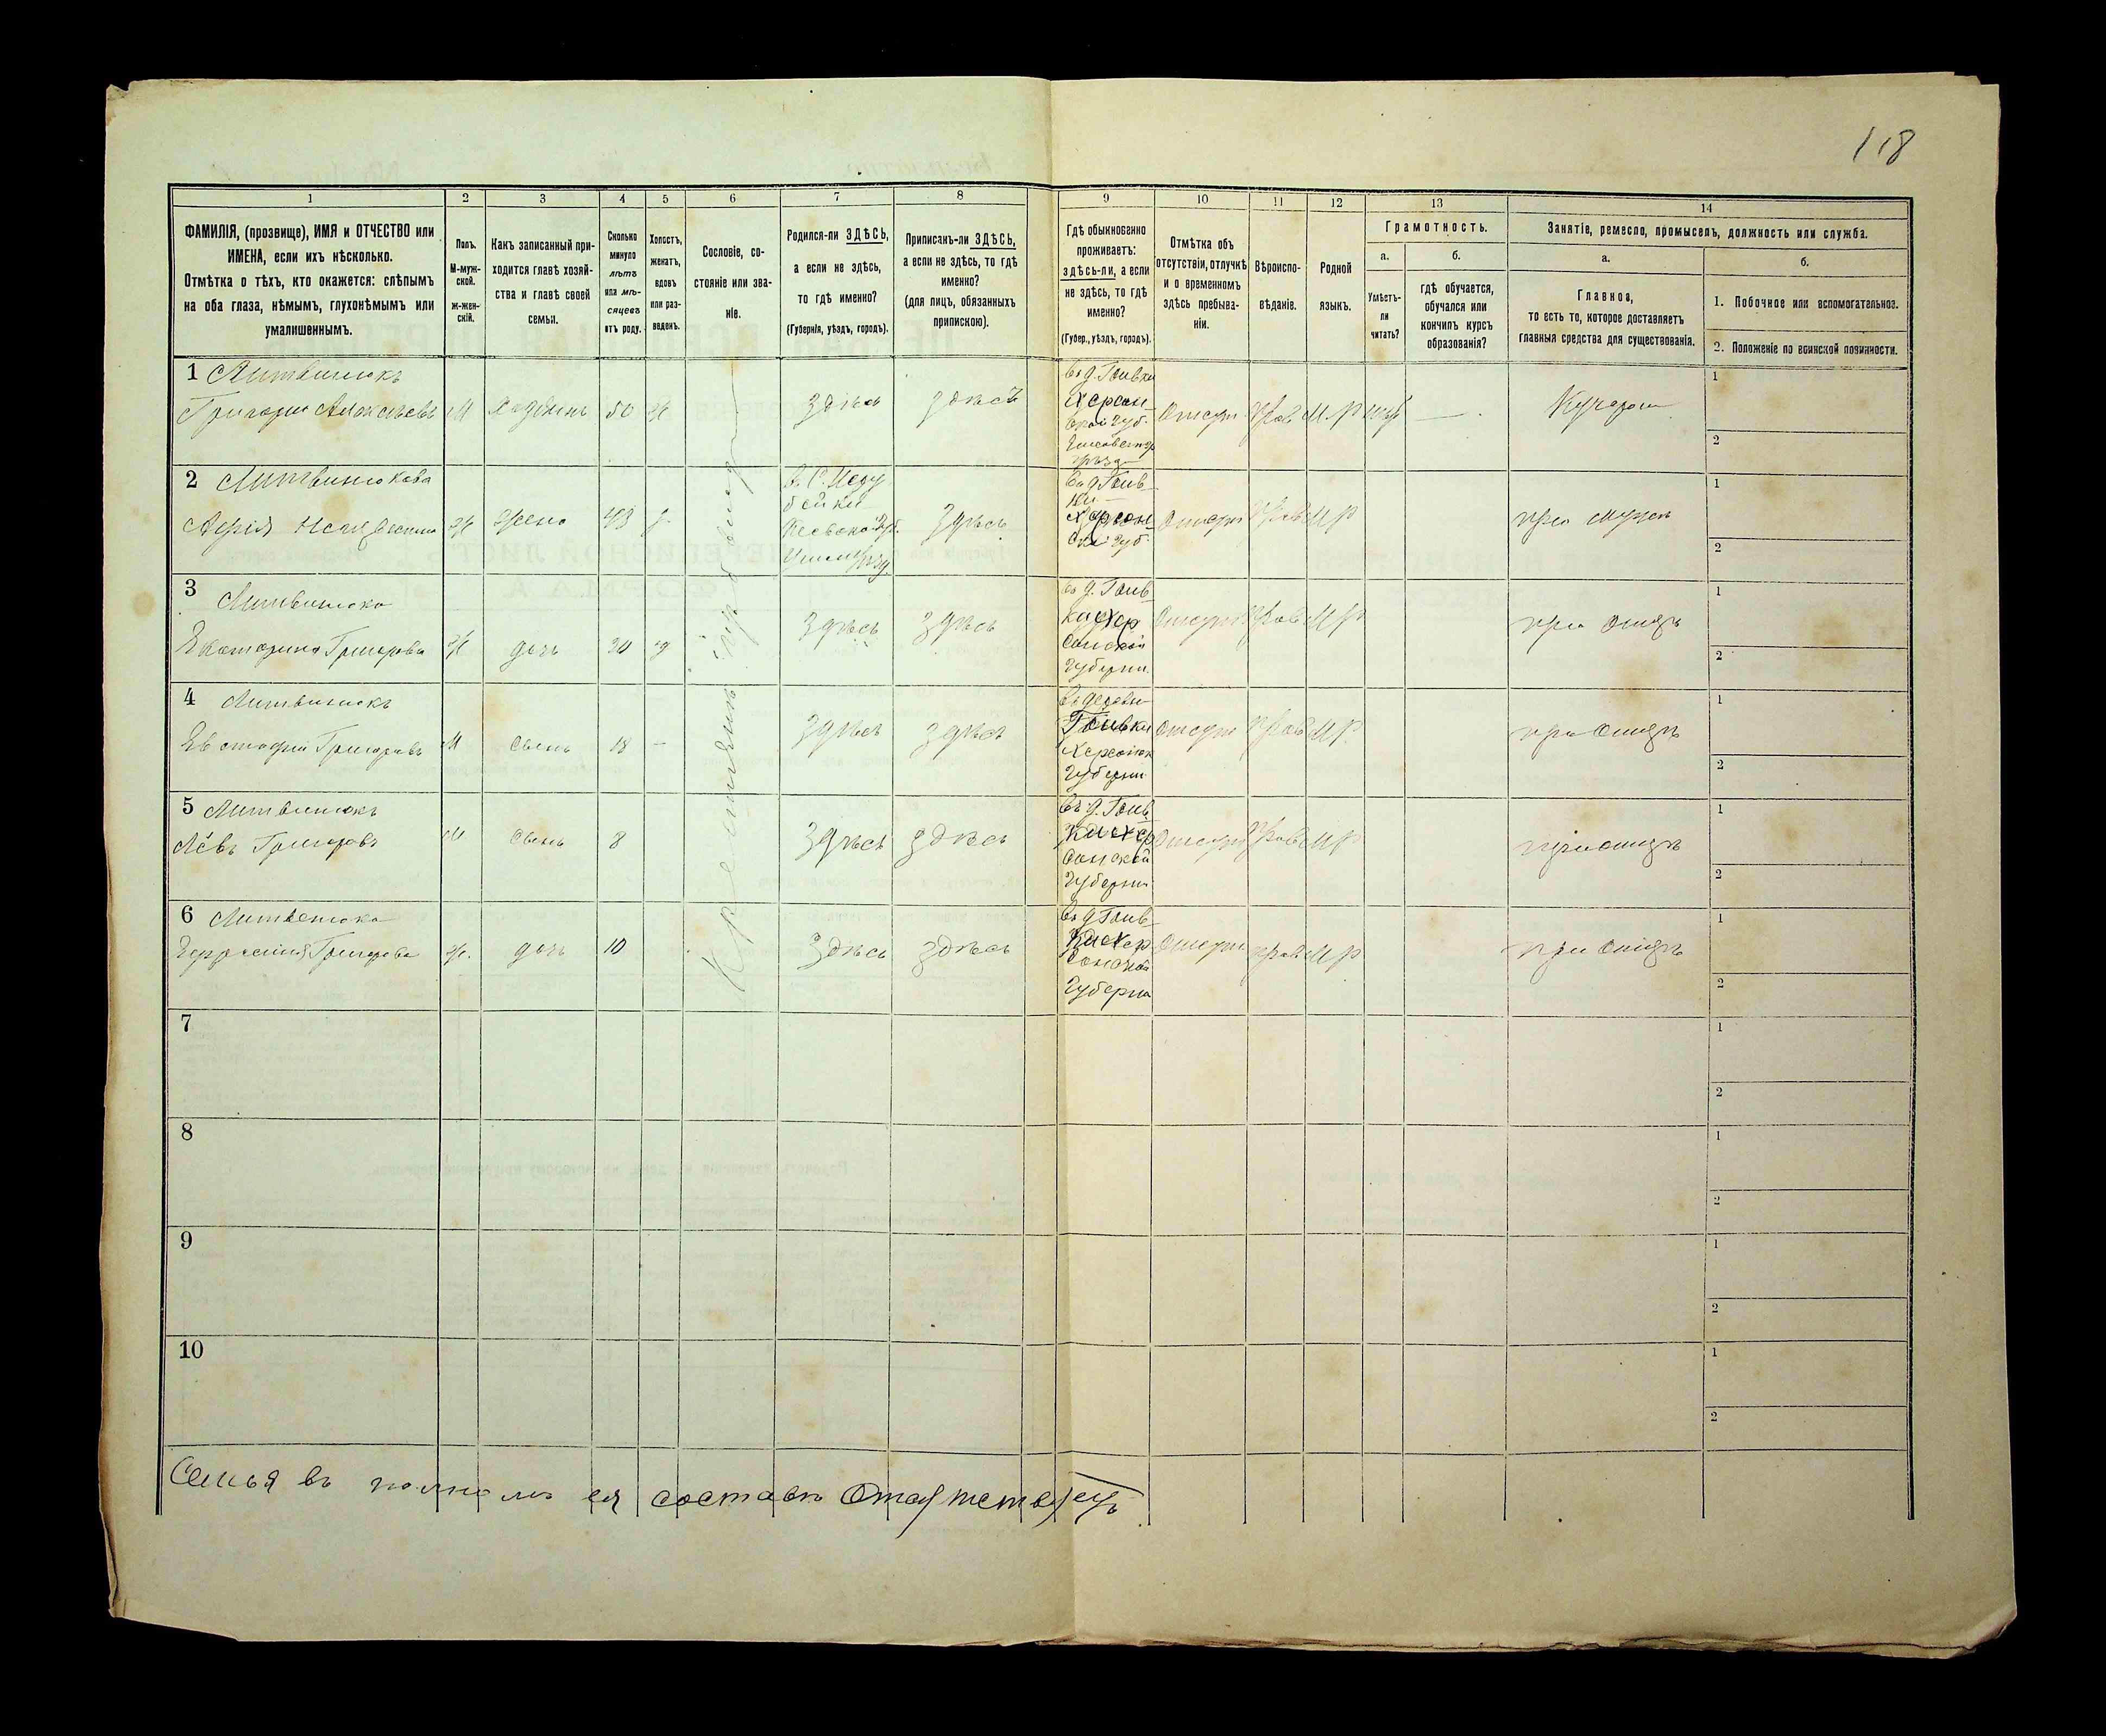 118
1 2 3 4 5 6 7 8 9 10 11 12 13 14
ФАМИЛІЯ, (прозвище), ИМЯ и ОТЧЕСТВО или
ИМЕНА, если ихъ нѣсколько.
Отмѣтка о тѣхъ, кто окажется: слѣпымъ
на оба глаза, нѣмымъ, глухонѣмымъ или
умалишеннымъ.
Полъ.
М-муж-
ской.
ж-жен-
скій.
Какъ записанный при-
ходится главѣ хозяй-
ства и главѣ своей
семьи.
Сколько
минуло
лѣтъ
или мѣ-
сяцевъ
отъ роду.
Холостъ,
женатъ,
вдовъ
или раз-
веденъ.
Сословіе, со-
стояніе или зва-
ніе.
Родился-ли ЗДѢСЬ,
а если не здѣсь,
то гдѣ именно?
(Губернія, уѣздъ, городъ).
Приписанъ-ли ЗДѢСЬ,
а если не здѣсь, то гдѣ
именно?
(для лицъ, обязанныхъ
припискою).
Гдѣ обыкновенно
проживаетъ:
здѣсь-ли, а если
не здѣсь, то гдѣ
именно?
(Губер., уѣздъ, городъ).
Отмѣтка объ
отсутствіи, отлучкѣ
и о временномъ
здѣсь пребыва-
ніи.
Вѣроиспо-
вѣданіе.
Родной
языкъ.
Грамотность.
а.
Умѣетъ-
ли
читать?
б.
гдѣ обучается,
обучался или
кончилъ курсъ
образованія?
Занятіе, ремесло, промыселъ, должность или служба.
а.
Главное,
то есть то, которое доставляетъ
главныя средства для существованія.
б.
1. Побочное или вспомогательное.
2. Положеніе по воинской повинности.
1 Литвинюкъ
Григорій Алексѣевъ М 50 Ж здѣсь здѣсь
Въ д.
Херсон
ской губ.
Отсут Прав М.Р
1
2
2 Литвинюкова
Ж жена 43 Здѣсь
Въ д.
Херсон
ской губ.
Отсут Прав МР при мужѣ
1
2
3 Литвинюка
Екатерина Григорова Ж дочь 20 Здѣсь Здѣсь
Въ д.
Хер
сонской
губерни
Отсут Прав МР при отцѣ
1
2
4 Литвинюкъ
Евстафій Григоровъ М сынъ 18 — Здѣсь Здѣсь
Въ деревн
Херсонск
губерни
Отсут Прав МР при отцѣ
1
2
5 Литвинюкъ
Лёвъ Григоровъ М сынъ 8 Здѣсь здѣсь
Въ д.
Хер
сонской
губерни
Отсут Прав МР при отцѣ
1
2
6 Литвенюка
Григорова Ж. дочь 10 Здѣсь здѣсь
Въ д
Хер
сонской
губерни
Отсут прав МР при отцѣ
1
2
7
1
2
8
1
2
9
1
2
10
1
2
Семья въ полномъ ея составѣ отсутствуетъ